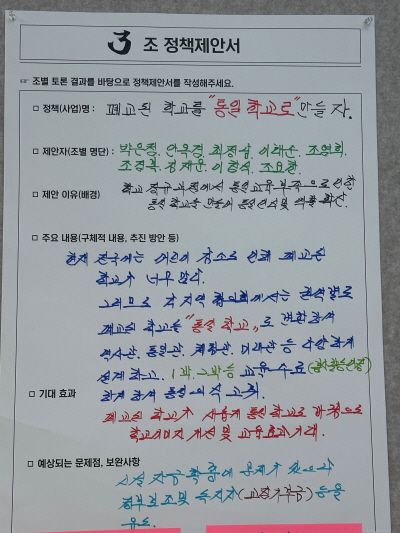 3 조 정책제안서
☞ 조별 토론 결과를 바탕으로 정책제안서를 작성해주세요.
□ 정책(사업)명 : 폐교된 학교를 "통일 학교로" 만들자.
□ 제안자(조별 명단) : 박은정. 안옥경. 최정심. 이래순. 조영희.
이형석. 조요한
□ 제안 이유(배경) 학교 정규 과정에서 통일 교육부족으로 인한
통일 학교를 만들어 통일인식 및 역할 확산.
□ 주요 내용(구체적 내용, 추진 방안 등)
현재 전국에는 어린이 감소로 인해 폐교된
학교가 너무 많다.
그러므로 각 지역 협의회에서는 권역별로
폐교된 학교를 "통일 학교"로 변환하여
역사관. 통일관. 체험관. 미래관 등 다양하게
설계하고. 1박. 2박 등 교육 수료
하게 하여 통일의식 고취.
□ 기대 효과
폐교된 학교가 새롭게 통일 학교로 바뀜으로
학교이미지 개선 및 교육효과 기대.
□ 예상되는 문제점, 보완사항
시설 자금 확충에 문제가 있으나
정부보조 및 독지가 (고향기부금) 등을
유도.